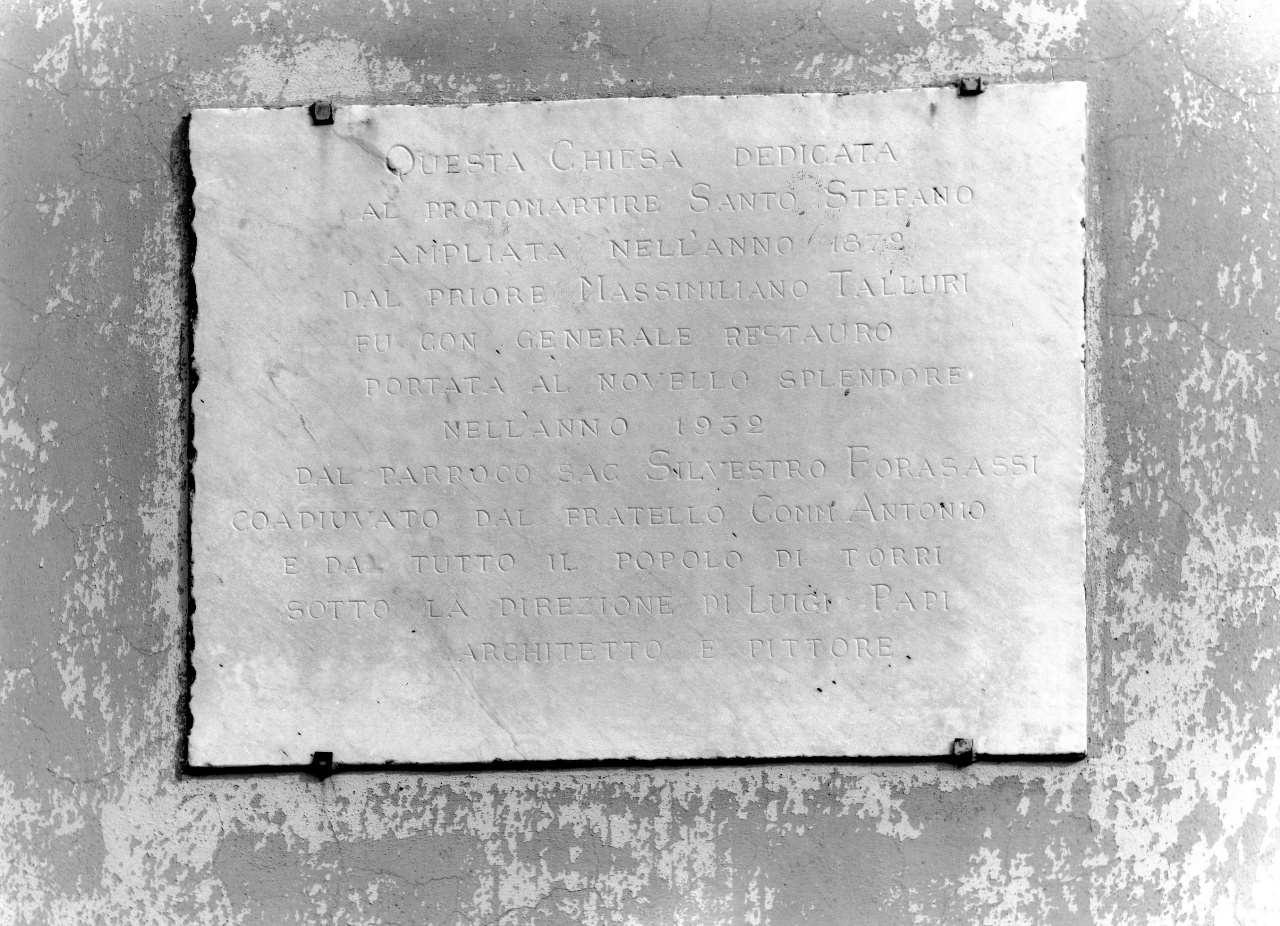 QUESTA CHIESA DEDICATA
AL PROTOMARTIRE SANTO STEFANO
AMPLIATA NELL'ANNO 1872
DAL PRIORE MASSIMILIANO TALLURI
FU CON GENERALE RESTAURO
PORTATA AL NOVELLO SPLENDORE
NELL'ANNO 1932
DAL PARROCO SAC SILVESTRO FORASASSI
COADIUVATO DAL FRATELLO COMM ANTONIO
E DAL TUTTO IL POPOLO DI TORRI
SOTTO LA DIREZIONE DI LUIGI PAPI
ARCHITETTO E PITTORE